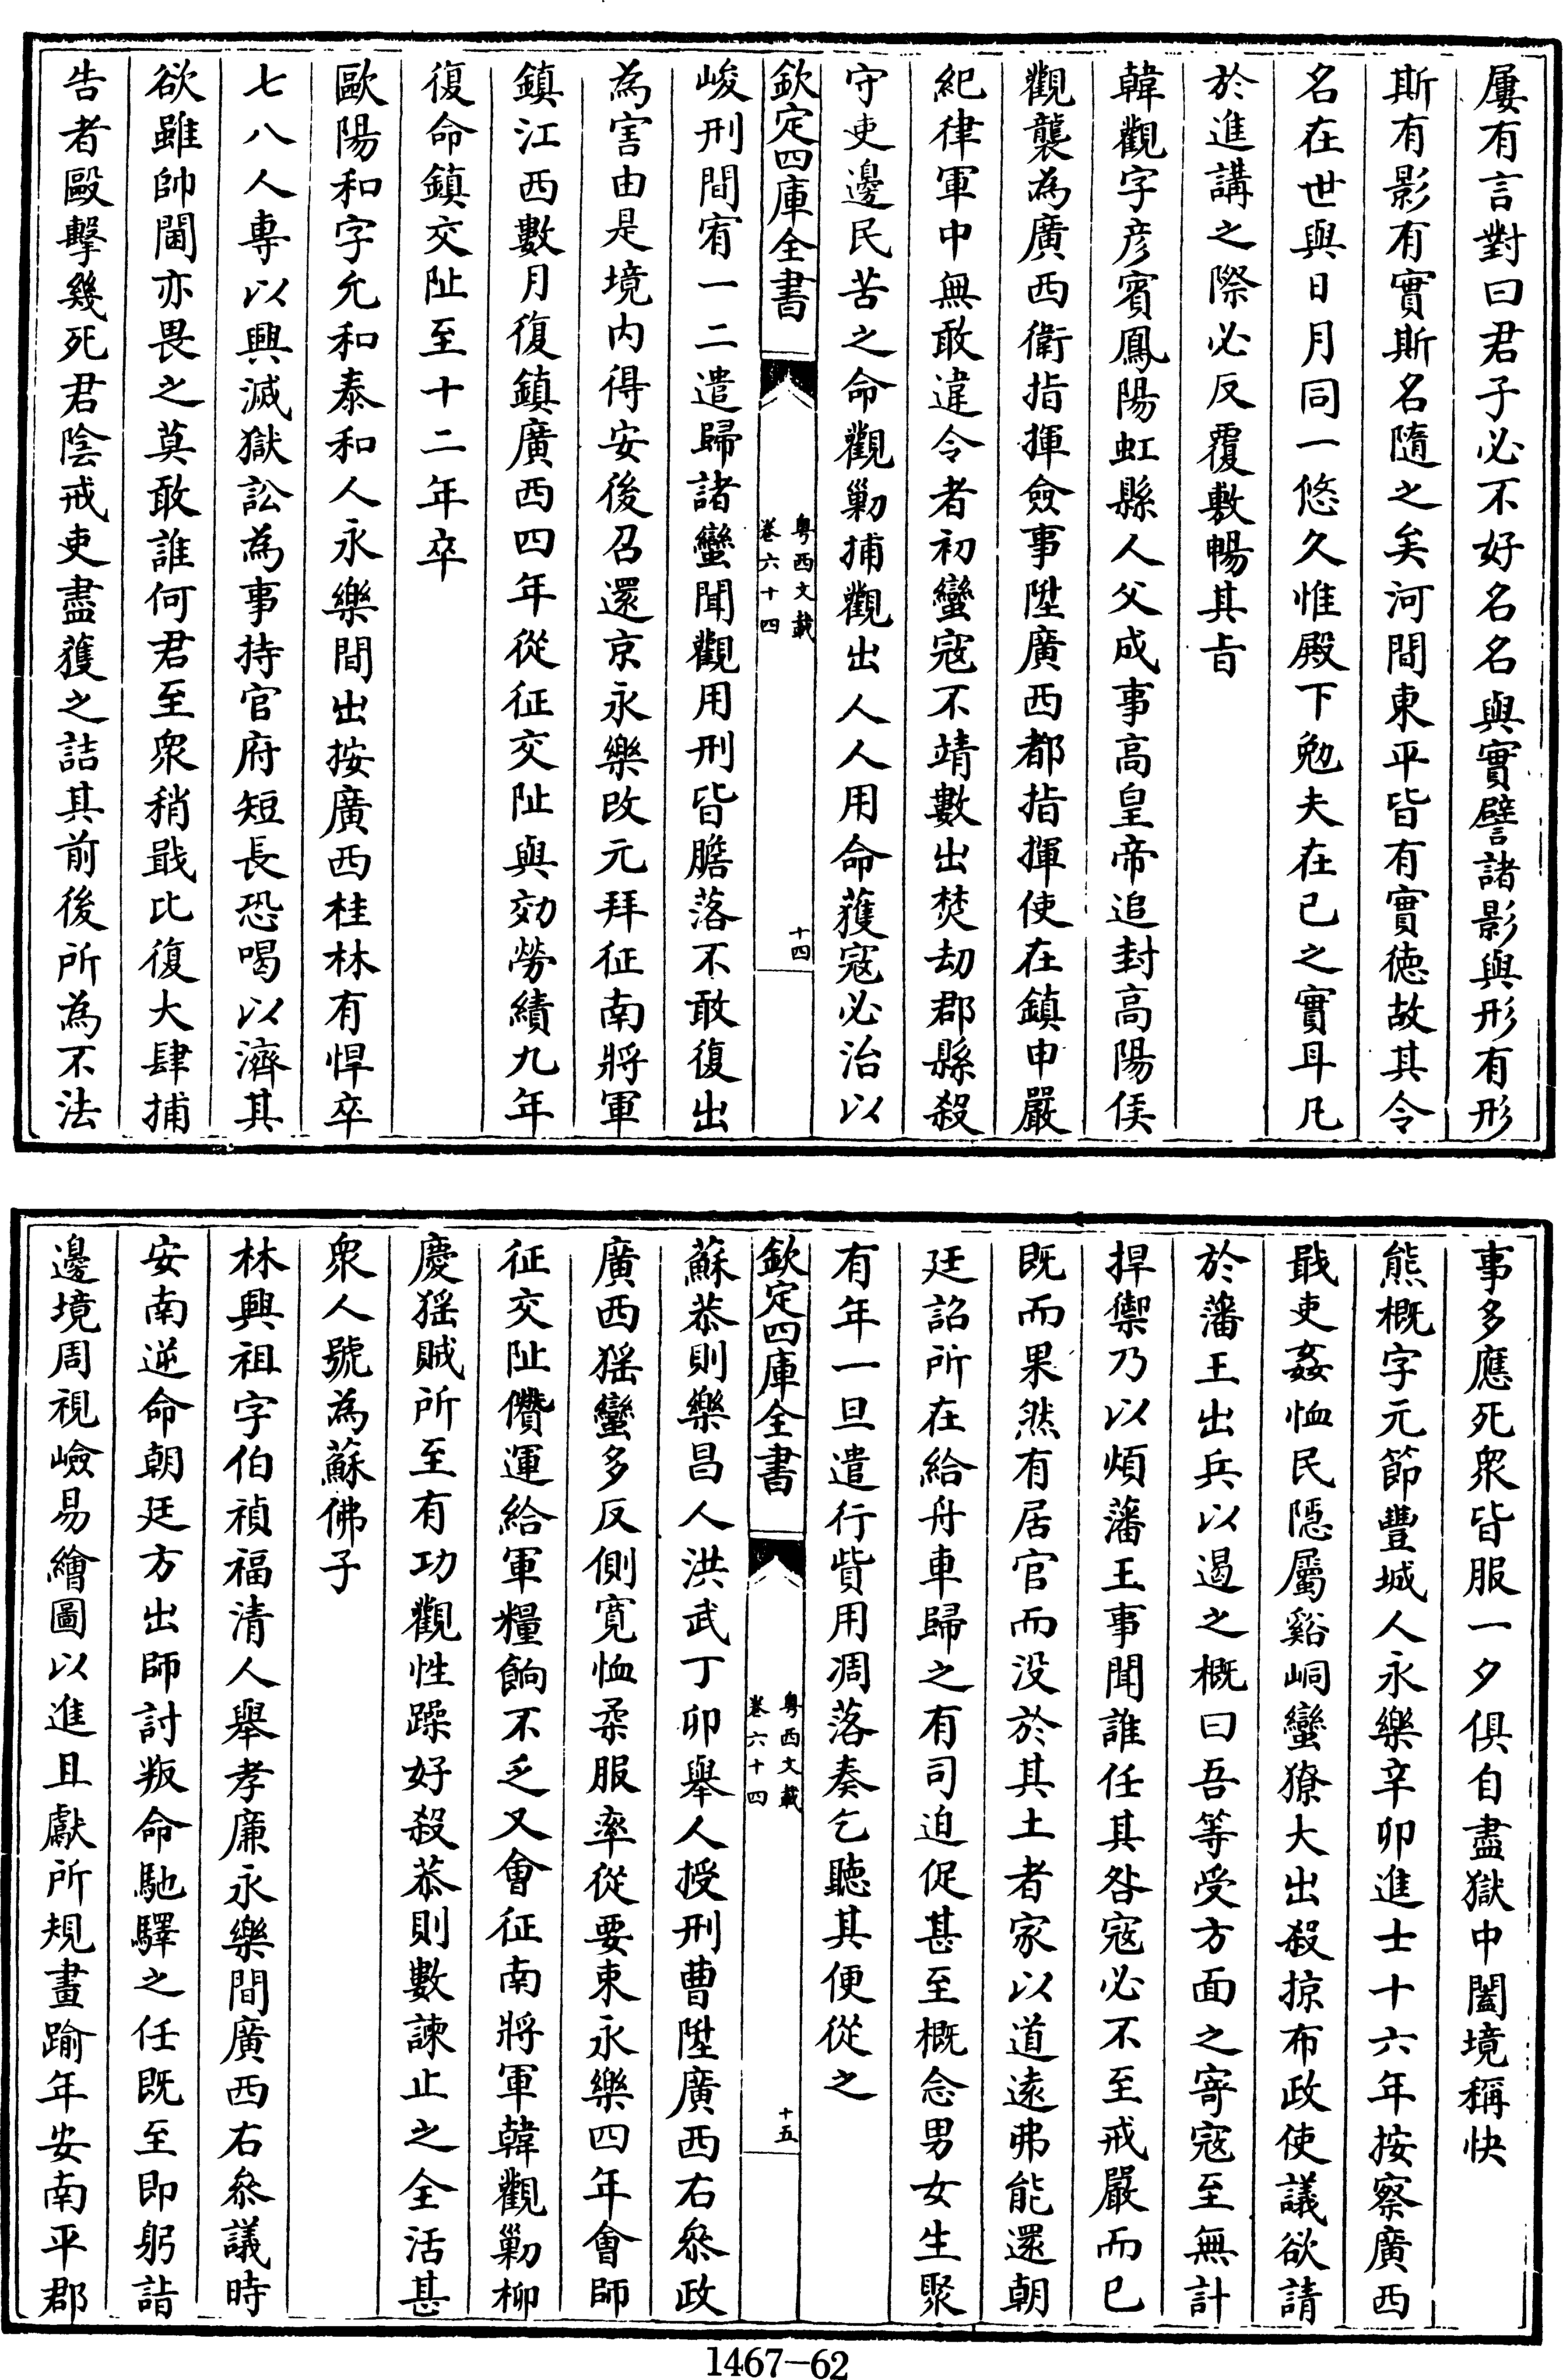 屢有言對曰君子必不好名名與實譬諸影與形有形
斯有影有實斯名隨之矣河間東平皆有實徳故其令
名在世與日月同一悠久惟殿下勉夫在已之實耳凡
於進講之際必反覆敷暢其㫖
韓觀字彦賓鳳陽虹縣人父成事高皇帝追封高陽侯
觀襲為廣西衛指揮僉事陞廣西都指揮使在鎮申嚴
紀律軍中無敢違令者初蠻寇不靖數出焚刦郡縣殺
守吏邊民苦之命觀勦捕觀出人人用命獲寇必治以
欽定四庫全書
粤西文載
卷六十四
十四
峻刑間宥一二遣歸諸蠻聞觀用刑皆膽落不敢復出
為害由是境内得安後召還京永樂改元拜征南將軍
鎮江西數月復鎮廣西四年從征交阯與効勞績九年
復命鎮交阯至十二年卒
歐陽和字允和泰和人永樂間出按廣西桂林有悍卒
七八人專以興滅獄訟為事持官府短長恐喝以濟其
欲雖帥閫亦畏之莫敢誰何君至衆稍戢比復大肆捕
告者毆擊幾死君陰戒吏盡獲之詰其前後所為不法
事多應死衆皆服一夕俱自盡獄中闔境稱快
熊概字元節豐城人永樂辛卯進士十六年按察廣西
戢吏姦恤民隠屬谿峒蠻獠大出殺掠布政使議欲請
於藩王出兵以遏之概曰吾等受方面之寄寇至無計
捍禦乃以煩藩王事聞誰任其咎寇必不至戒嚴而已
既而果然有居官而没於其土者家以道逺弗能還朝
廷詔所在給舟車歸之有司迫促甚至概念男女生聚
有年一旦遣行貲用凋落奏乞聽其便從之
欽定四庫全書
粤西文載
卷六十四
十五
蘇恭則樂昌人洪武丁卯舉人授刑曹陞廣西右叅政
廣西猺蠻多反側寛恤柔服率從要束永樂四年會師
征交阯儹運給軍糧餉不乏又會征南將軍韓觀勦柳
慶猺賊所至有功觀性躁好殺恭則數諫止之全活甚
衆人號為蘇佛子
林興祖字伯禎福清人舉孝廉永樂間廣西右叅議時
安南逆命朝廷方出師討叛命馳驛之任既至即躬詣
邊境周視嶮易繪圖以進且獻所規畫踰年安南平郡
1467-62